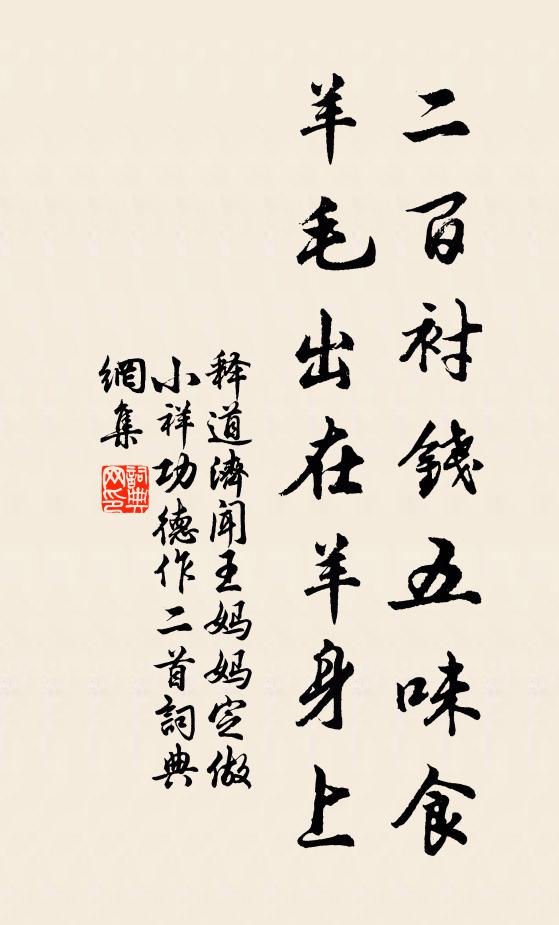 二百衬錢五味食
羊毛出在羊身上
释道濟闻王妈妈定做
小祥功德作二首詞典
網集
詞典
网印